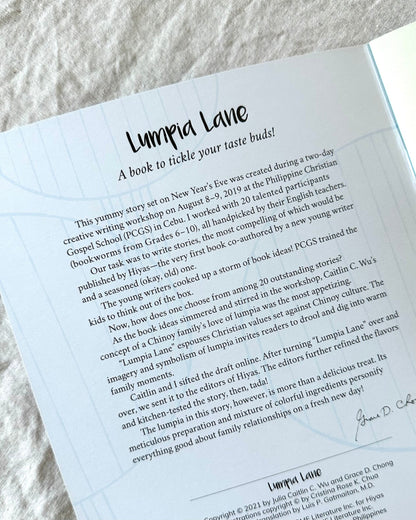 Lumpia Lane
A book to tickle your taste buds!
This yummy story set on New Year's Eve was created during a two-day
creative writing workshop on August 8–9, 2019 at the Philippine Christian
Gospel School (PCGS) in Cebu. I worked with 20 talented participants
(bookworms from Grades 6–10), all handpicked by their English teachers.
Our task was to write stories, the most compelling of which would be
published by Hiyas—the very first book co-authored by a new young writer
and a seasoned (okay, old) one.
The young writers cooked up a storm of book ideas! PCGS trained the
kids to think out of the box.
Now, how does one choose from among 20 outstanding stories?
As the book ideas simmered and stirred in the workshop, Caitlin C. Wu's
concept of a Chinoy family's love of lumpia was the most appetizing.
"Lumpia Lane" espouses Christian values set against Chinoy culture. The
imagery and symbolism of lumpia invites readers to drool and dig into warm
family moments.
Caitlin and I sifted the draft online. After turning "Lumpia Lane" over and
over, we sent it to the editors of Hiyas. The editors further refined the flavors
and kitchen-tested the story, then, tada!
The lumpia in this story, however, is more than a delicious treat. Its
meticulous preparation and mixture of colorful ingredients personify
everything good about family relationships on a fresh new day!
Grace D. Chong
Lumpia Lane
Copyright © 2021 by Julia Caitlin C. Wu and Grace D. Chong
Illustrations copyright © by Cristina Rose K. Chua
Translation by Luis P. Gatmaitan, M.D.
Literature Inc. for Hiyas
Literature Inc.